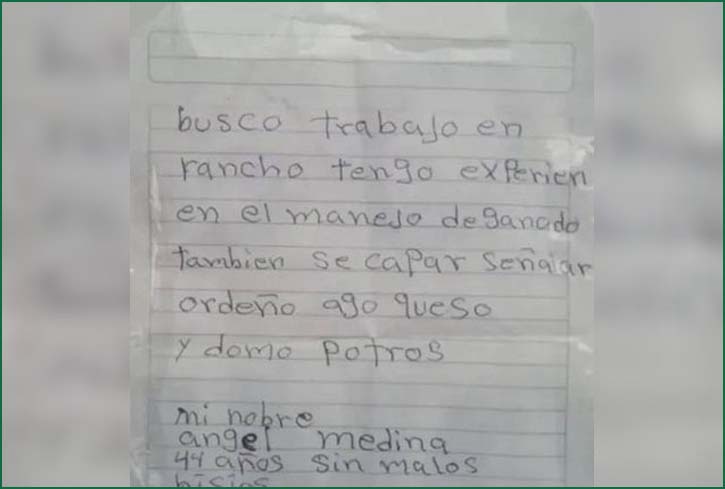 busco trabajo en
rancho tengo experien
en el manejo de ganado
tambien se capar señalar
ordeño ago queso
y domo potros
mi nobre
angel medina
44 años sin malos
bicios